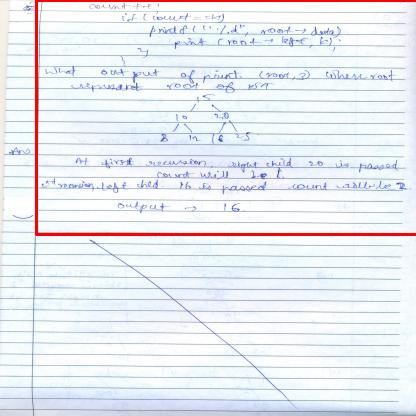 count ++;
if (count == k)
printf ("%d", root → data)
print (root → left, k);
}
}
What output of print (root, 3) where root
represent root of BST
15
10 20
8 12 16 25
Ans
At first recursion, right child 20 is passed
count will be 1.
left child 16 is passed count will be 2
output → 16